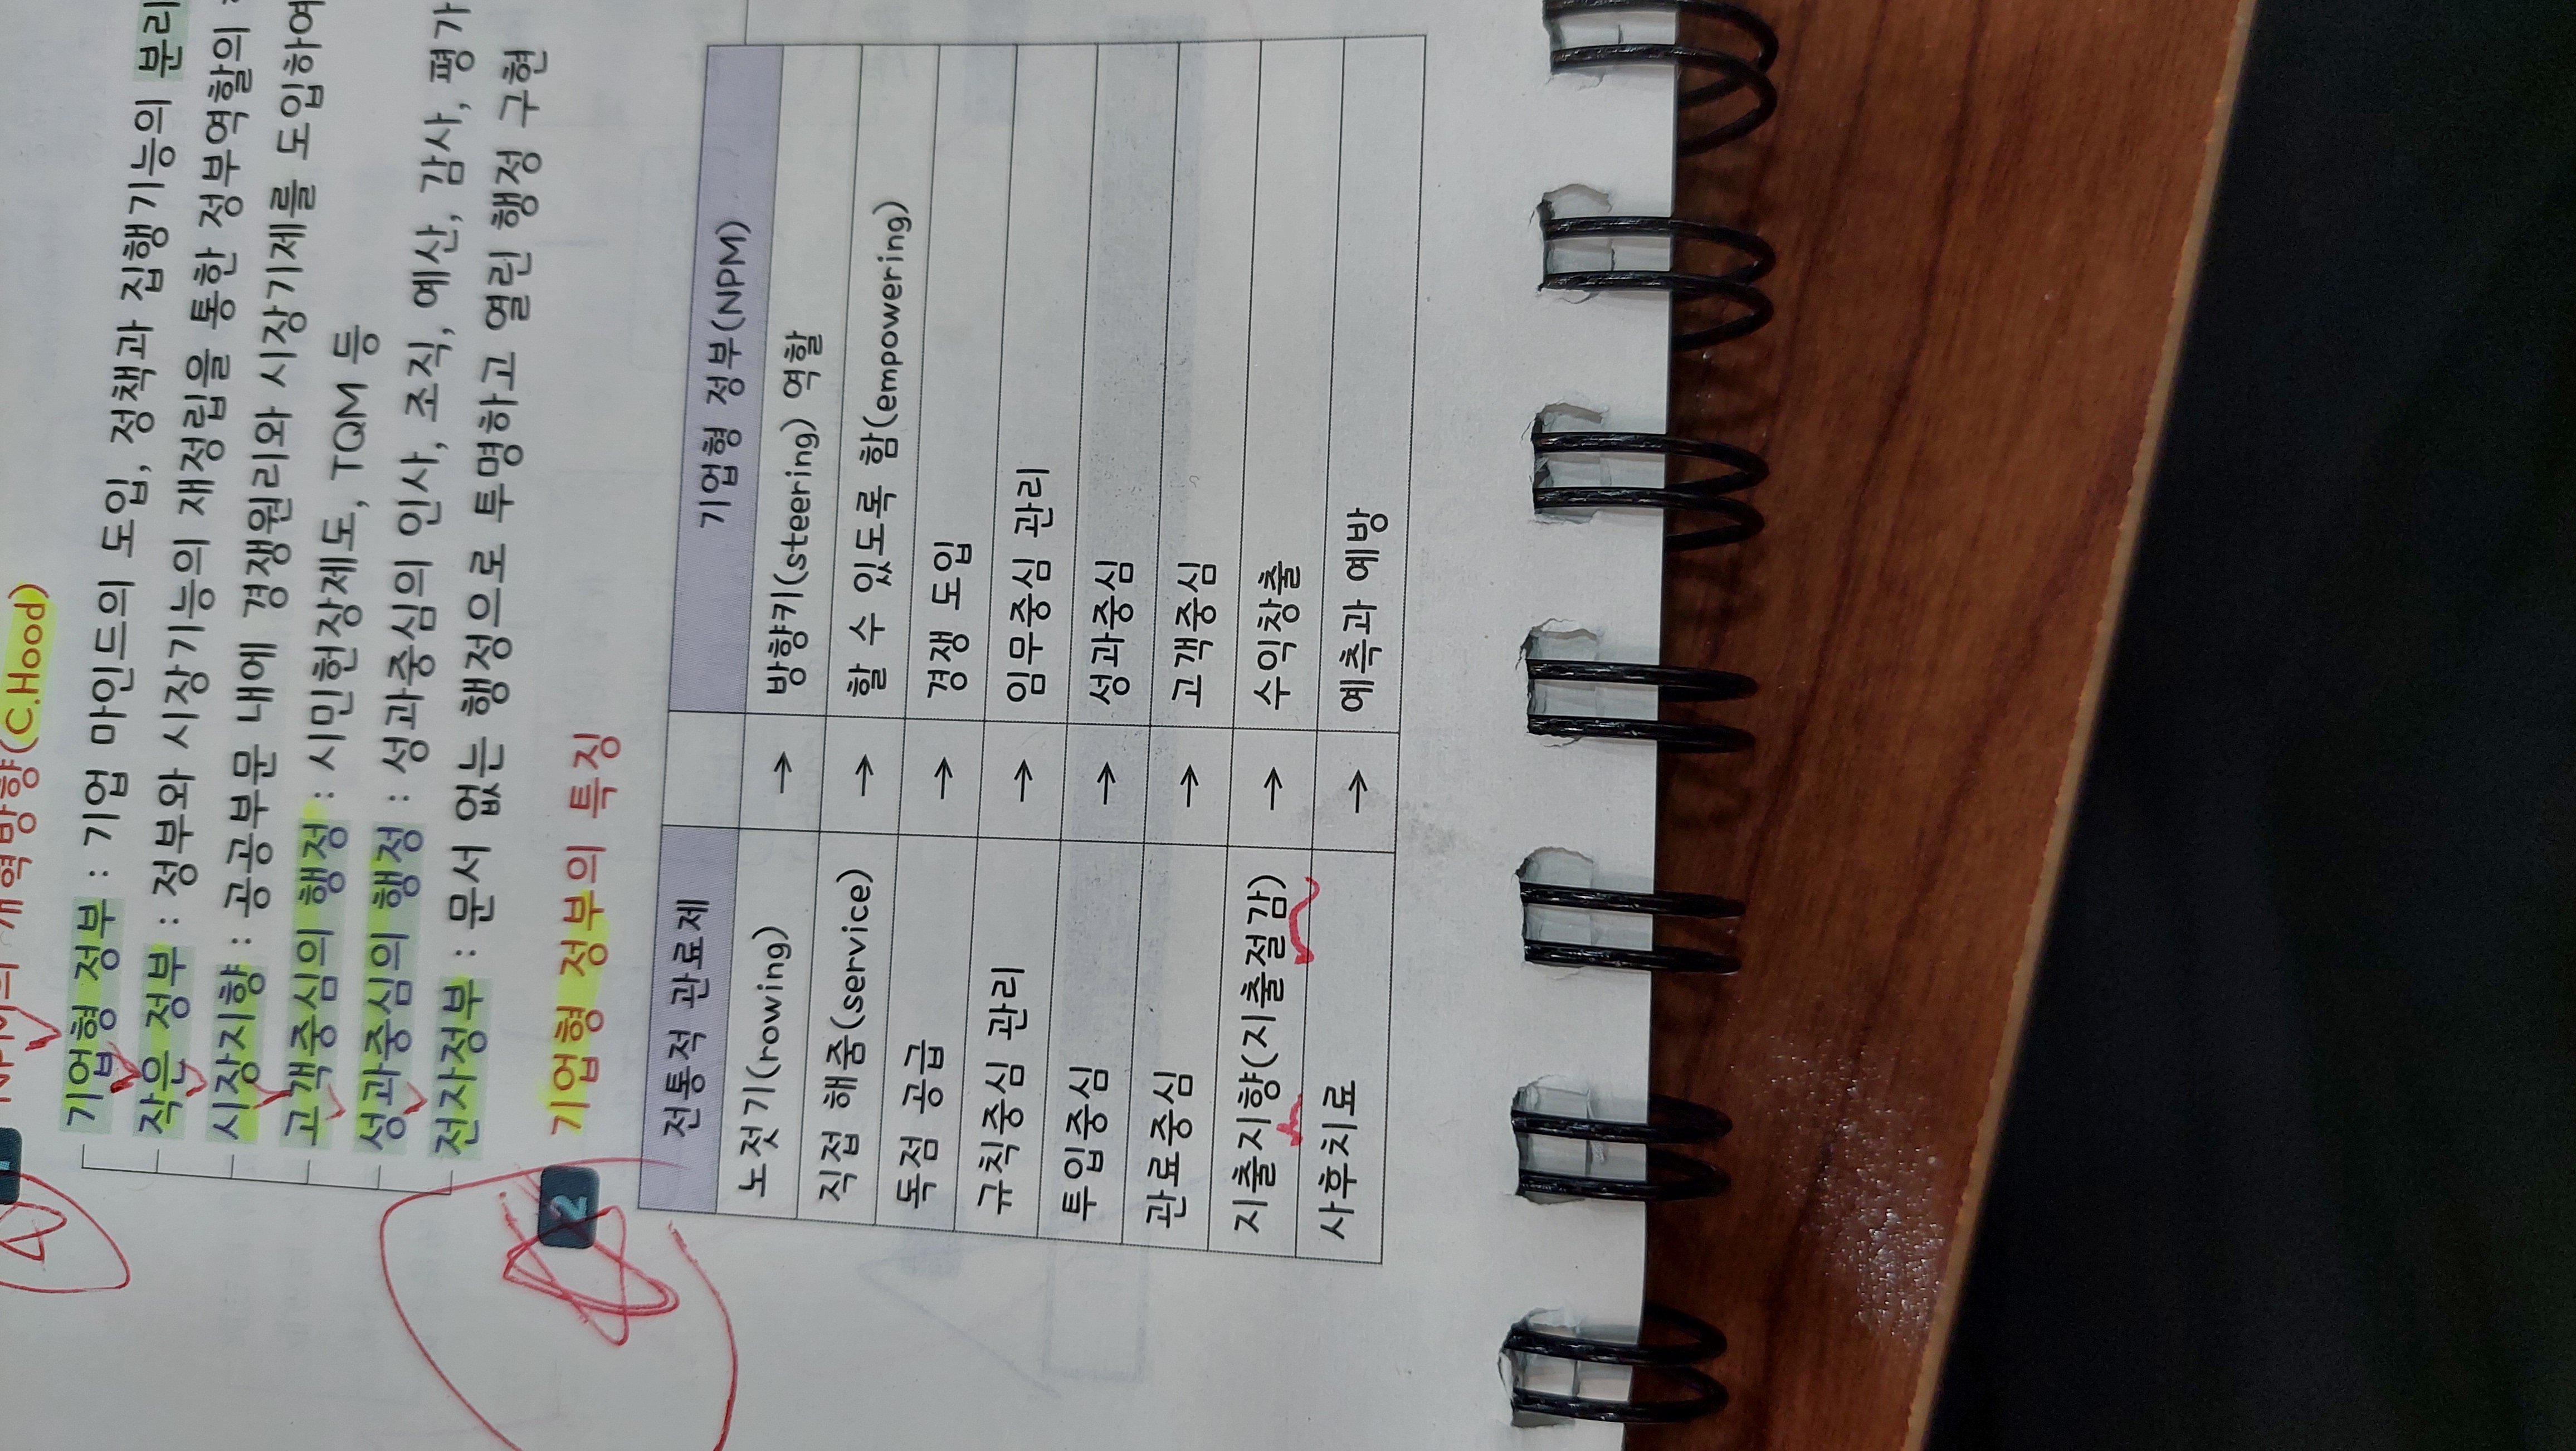 NPM의 개혁방향(C.Hood)
기업형 정부 : 기업 마인드의 도입, 정책과 집행기능의 분리
작은 정부 : 정부와 시장기능의 재정립을 통한 정부역할의
시장지향 : 공공부문 내에 경쟁원리와 시장기제를 도입하여
고객중심의 행정 : 시민헌장제도, TQM 등
성과중심의 행정 : 성과중심의 인사, 조직, 예산, 감사, 평가
전자정부 : 문서 없는 행정으로 투명하고 열린 행정 구현
2 기업형 정부의 특징
전통적 관료제 기업형 정부(NPM)
노젓기(rowing) → 방향키(steering) 역할
직접 해줌(service) → 할 수 있도록 함(empowering)
독점 공급 → 경쟁 도입
규칙중심 관리 → 임무중심 관리
투입중심 → 성과중심
관료중심 → 고객중심
지출지향(지출절감) → 수익창출
사후치료 → 예측과 예방